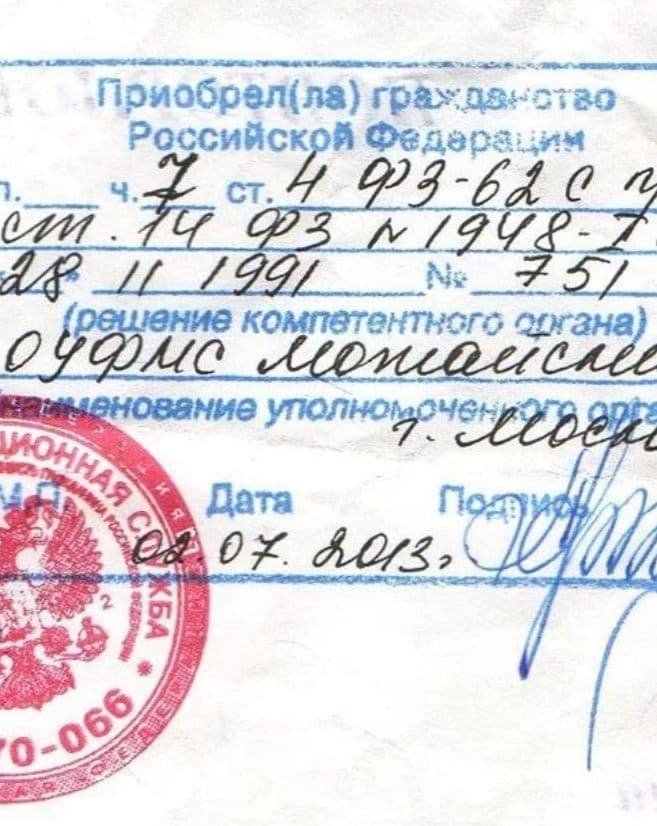 Приобрел(ла) гражданство
Российской Федерации
п. ч. 7 ст. 4 ФЗ-62 с
ст. 14 ФЗ № 1948-
28 11 1991 № 751
(решение компетентного органа)
ОУФМС
наименование уполномоченного
г.
М.П. Дата Подпись
02.07.2013г
СЛУЖБА *
70-066
2